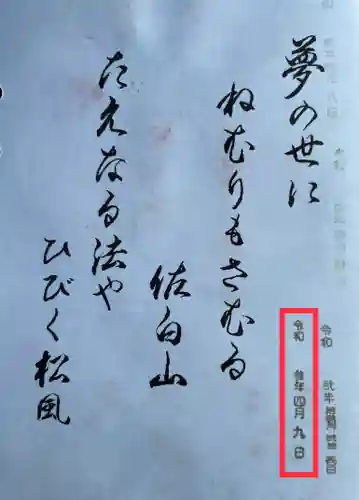 夢の世に
ねむりもさむる
佐白山
たえなる法や
ひびく松風
令和 参年四月九日
令和